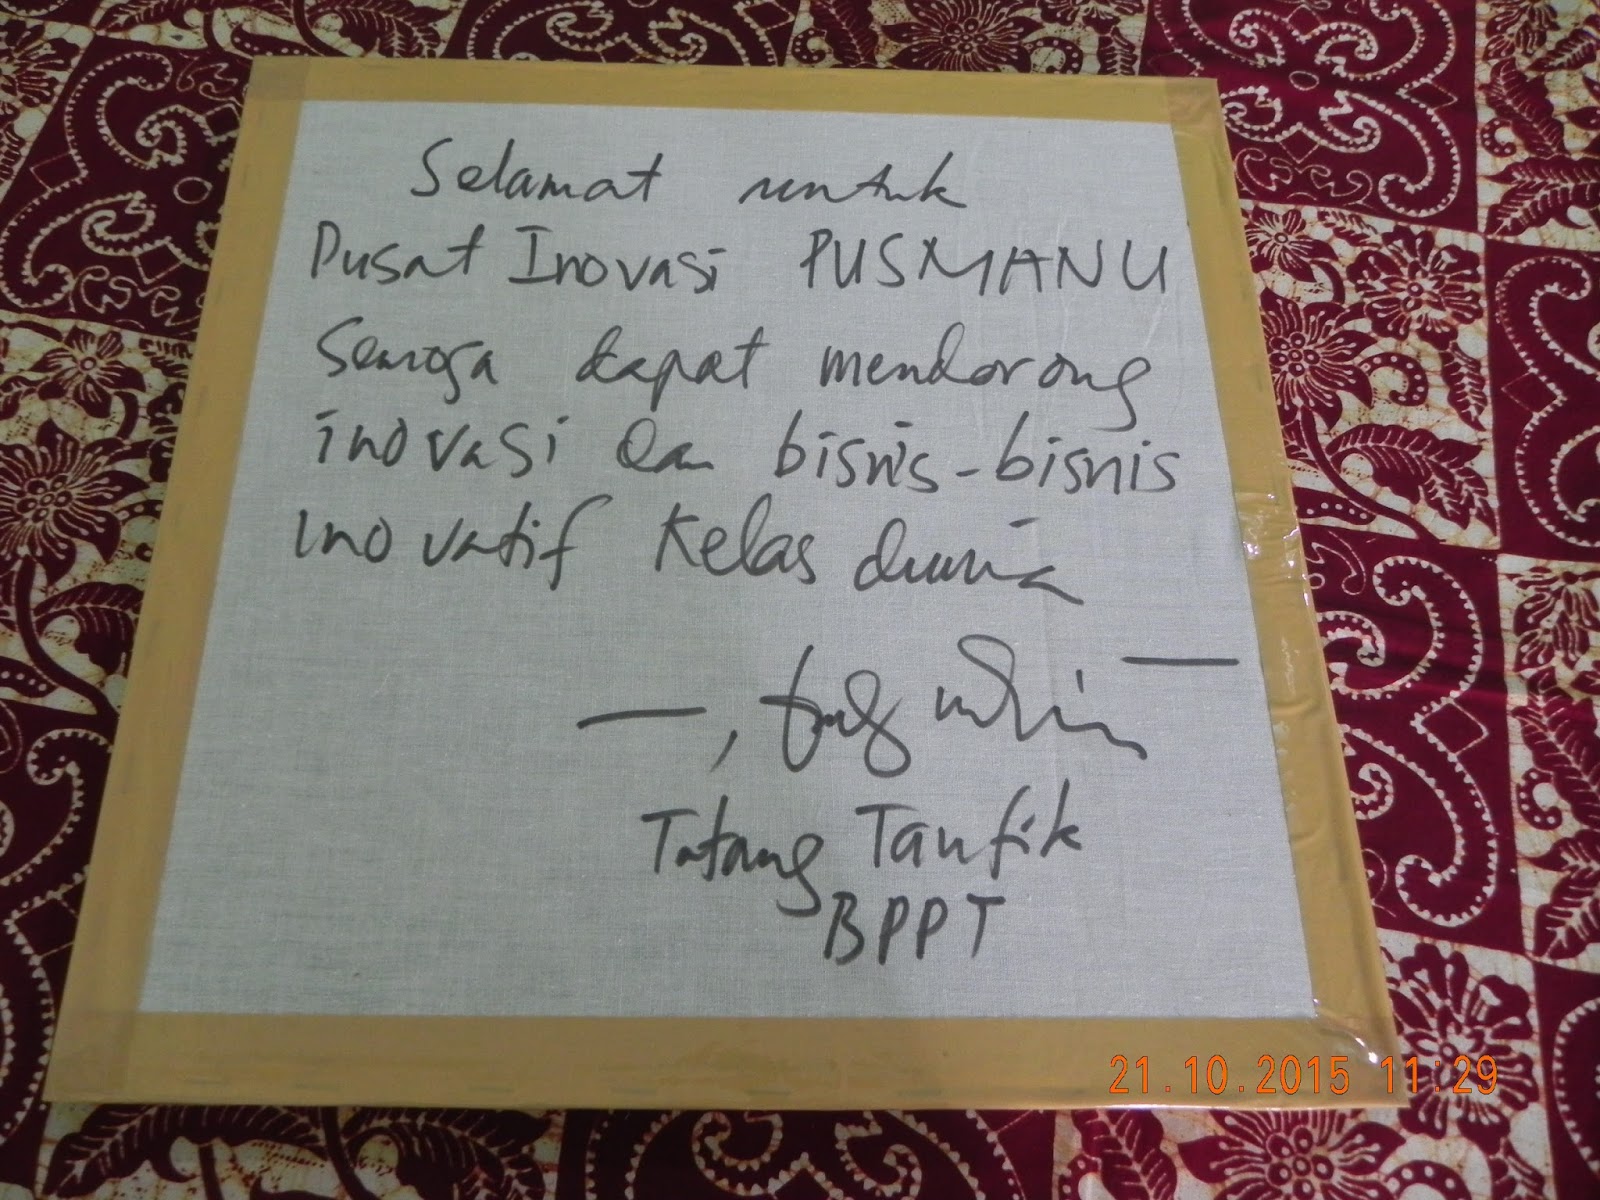 Selamat untuk
Pusat Inovasi PUSMANU
Semoga dapat mendorong
inovasi dan bisnis-bisnis
inovatif kelas dunia
Tatang Taufik
BPPT
21.10.2015 11:29